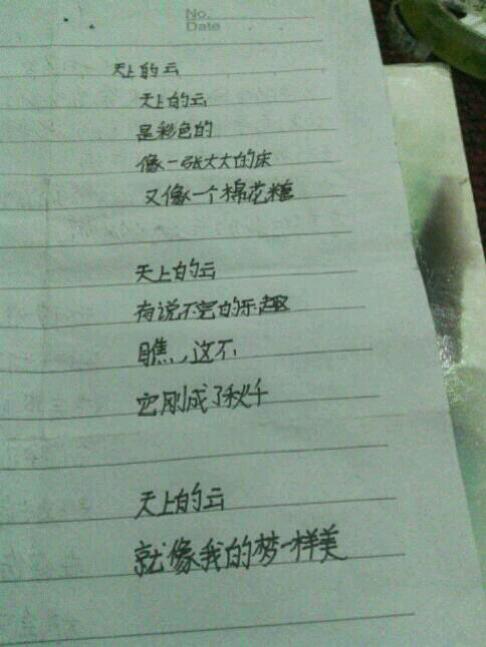 No.
Date
天上的云
天上的云
是彩色的
像一张大大的床
又像一个棉花糖
天上的云
有说不完的乐趣
瞧,这不
它刚成了秋千
天上的云
就像我的梦一样美